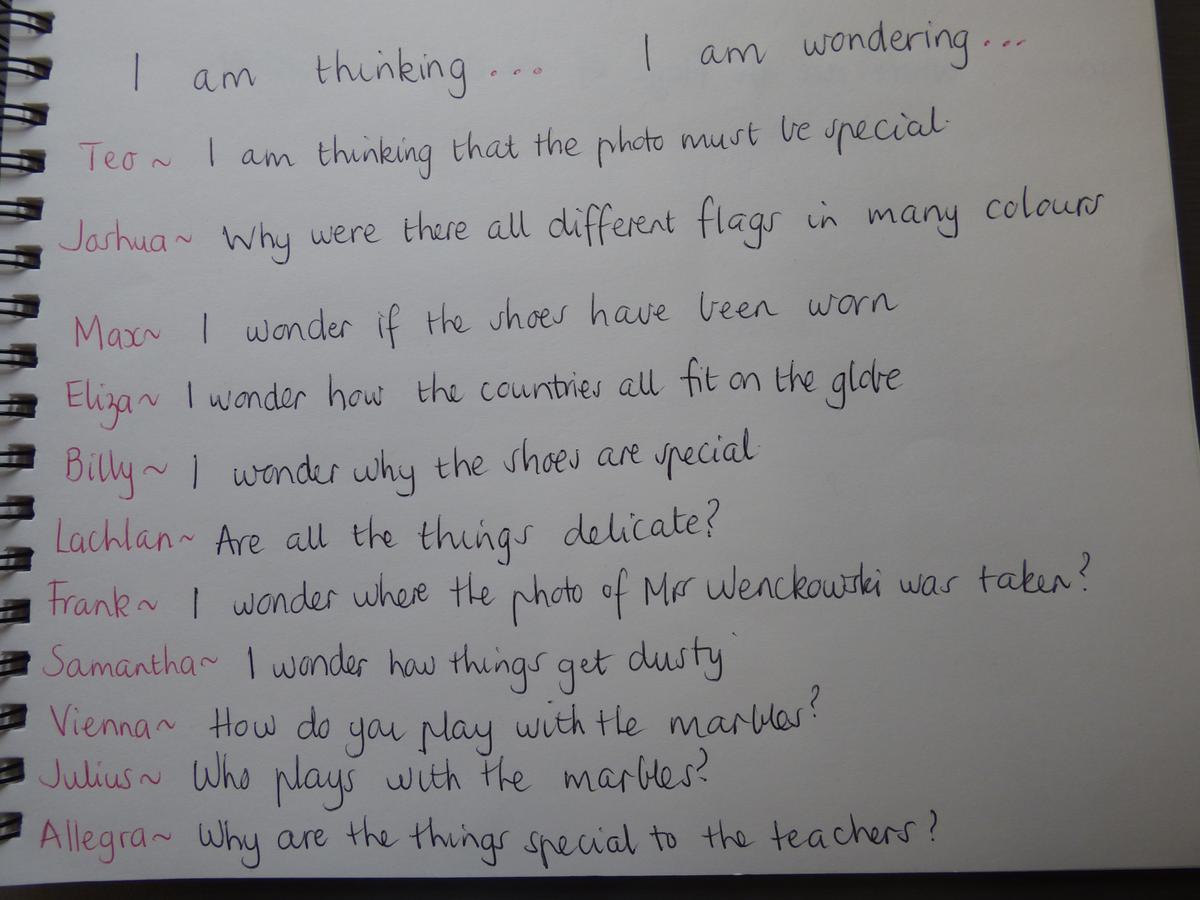 I am thinking... I am wondering...
Teo ~ I am thinking that the photo must be special.
Joshua ~ Why were there all different flags in many colours
Max ~ I wonder if the shoes have been worn
Eliza ~ I wonder how the countries all fit on the globe
Billy ~ I wonder why the shoes are special.
Lachlan ~ Are all the things delicate?
Frank ~ I wonder where the photo of Mrs Wenckowski was taken?
Samantha ~ I wonder how things get dusty
Vienna ~ How do you play with the marbles?
Julius ~ Who plays with the marbles?
Allegra ~ Why are the things special to the teachers?